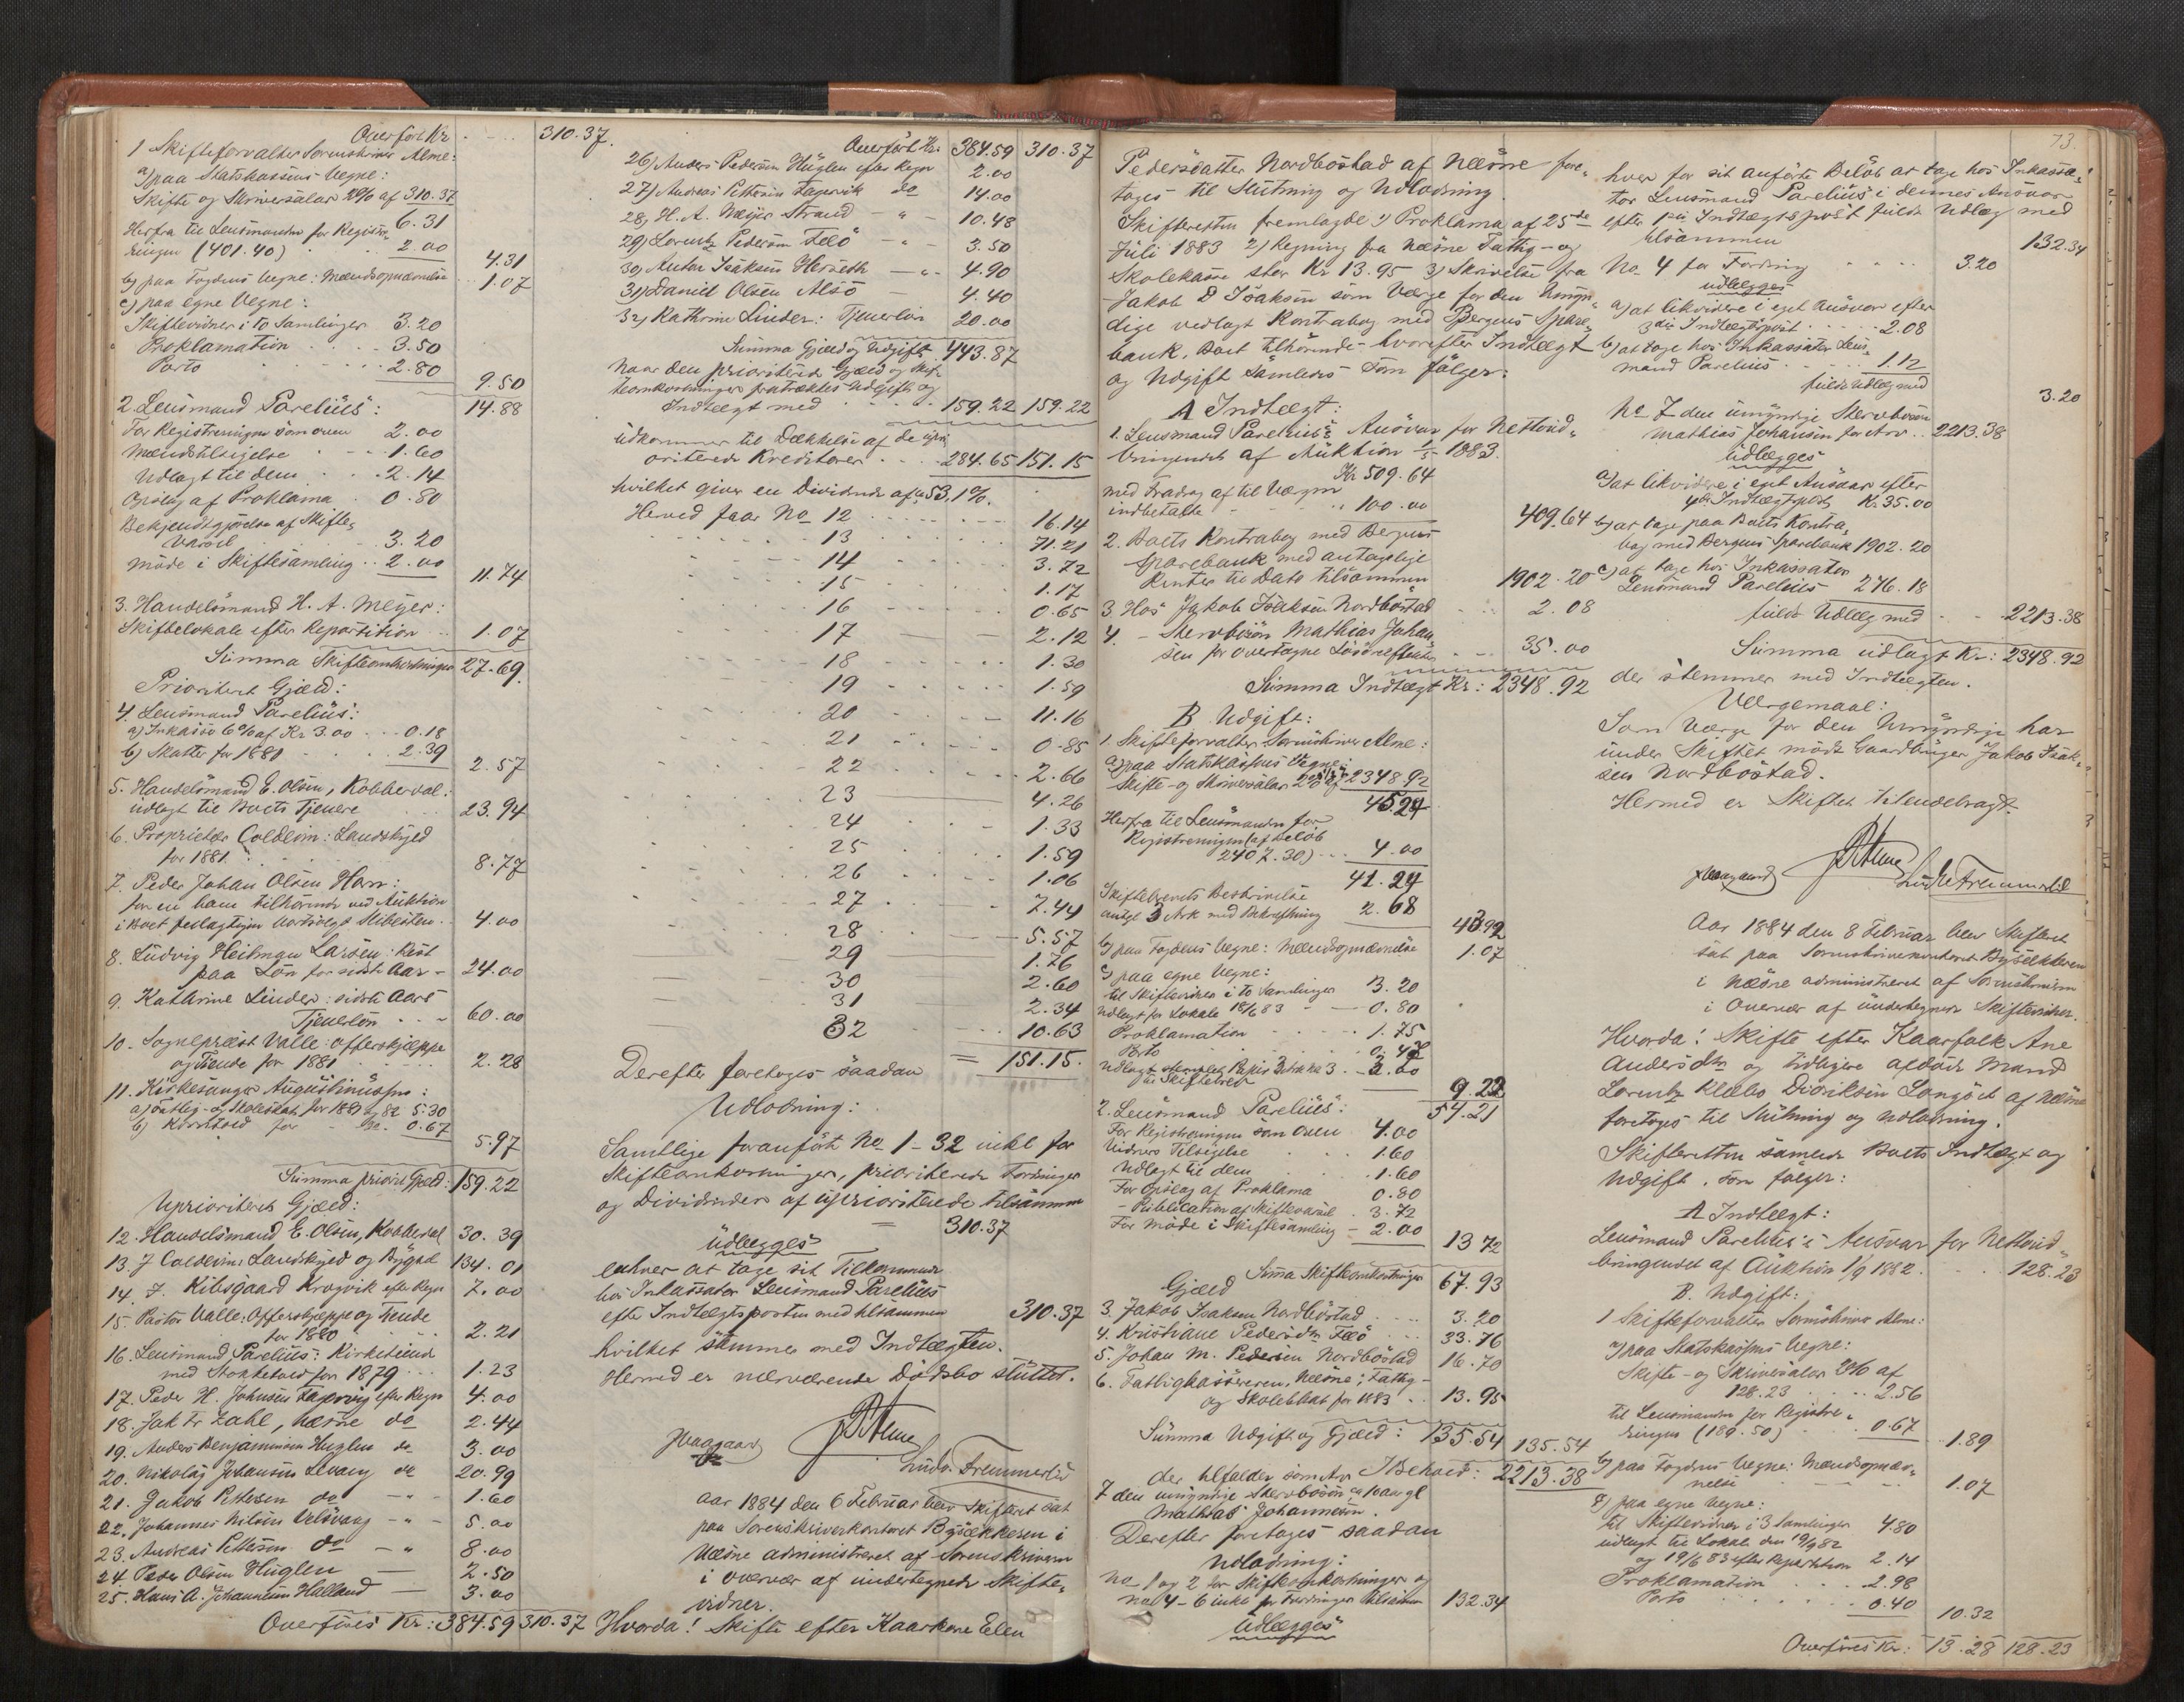 Overført Kr. 310.37.
1 Skifteforvalter Sorenskriver Alme:
a) paa Statskassens Vegne:
Skifte og Skriversalær 2% af 310.37
6.31
Herfra til Lensmanden for Registre-
ringen (401.40) 2.00
4.31
b) paa Fogdens Vegne: Mændsopnævnelse 1.07
c) paa egne Vegne:
Skiftevidner i to Samlinger 3.20
Proklamation 3.50
Porto 2.80
9.50
14.88
2. Lensmand Parelius:
For Registreringen som oven 2.00
Mændstilsigelse 1.60
Udlagt til dem 2.14
Opslag af Proklama 0.80
Bekjendtgjørelse af Skifte-
varsel 3.20
møde i Skiftesamling 2.00
11.74
3. Handelsmand H. A. Meyer:
Skiftelokale efter Repartition 1.07
Summa Skifteomkostninger 27.69.
Prioriteret Gjæld:
4. Lensmand Parelius:
a) Inkasso 6% af Kr 3.00 0.18
b) Skatter for 1880 2.39
2.57
5. Handelsmand E. Olsen, Kobberdal:
udlagt til Boets Tjenere 23.94
6. Proprietær Coldevin: Landskyld
for 1881. 8.77
7. Peder Johan Olsen Hann:
for en ham tilhørende ved Auktion
i Boet fejlagtigen bortsolgt 4.00
8. Ludvig Heitman Larsen: Rest
paa Løn for sidste Aar 24.00
9. Kathrine Linder: sidste Aars
Tjenerløn 60.00
10. Sognepræst Valle: offerskjæppe
og Tiende for 1881 2.28
11. Kirkesanger Augustinussen:
a) Fattig- og Skoleskat for 1881 og 82 5.30
b) for do. 0.67
5.97
Summa priorit. Gjæld: 159.22
Uprioriteret Gjæld:
12. Handelsmand E. Olsen, Kobberdal 30.39
13. J Coldevin: Landskyld og Bygsel 134.01
14. J. Kibsgaard Krogvik efter Regn 7.00
15. Pastor Valle: Offerskjæppe og Tiende
for 1880 2.21
16. Lensmand Parelius: Kirketiende
med for 1879 1.23
17. Peder H. Johnsen Fagervig efter Regn 4.00
18. Jak Fr Zahl, Næsne do 2.44
19. Anders Benjaminsen Huglen do 3.00
20. Nikolaj Johansen Levang do 20.99
21. Jakob Pettersen do 1.60
22. Johannes Nilsen Velsvaag - " - 5.00
23. Andreas Pettersen do - " 8.00
24. Peder Olsen Huglen 2.50
25. Hans A. Johannesen Halland 3.00
Overføres Kr: 384.59 310.37
Overført Kr: 384.59 310.37
26) Anders Pedersen Huglen efter Regn 2.00
27) Andreas Pettersen Fagervik do 14.00
28) H. A. Meyer Strand - " - 10.48
29) Lorentz Pedersen Fælø - " - 3.50
30) Anton Isaksen - " - 4.90
31) Daniel Olsen Alsø 4.40
32) Kathrine Linder: Tjenerløn 20.00
Summa Gjæld og Udgift 443.87
naar den prioriterede Gjæld og Skif-
teomkostninger fratrækkes Udgift og
Indtægt med 159.22 159.22
udkommer til Dækkelse af de upri-
oriterede Kreditorer 284.65 151.15
hvilket giver en Dividende af ca 53,1%.
Herved faar No 12 16.14
13 71.21
14 3.72
15 1.17
16 0.65
17 2.12
18 1.30
19 1.59
20 11.16
21 0.85
22 2.66
23 4.26
24 1.33
25 1.59
26 1.06
27 7.44
28 5.57
29 1.76
30 2.60
31 2.34
32 10.63
= 151.15.
Derefter foretoges saadan
Udlodning:
Samtlige foranførte No 1-32 inkl for
Skifteomkostninger, prioriterede Fordringer
og Dividender af uprioriterede tilsammen
= 310.37
udlægges
enhver at tage sit Tilkommende
hos Inkassator Lensmand Parelius
efter Indtægtsposten med tilsammen 310.37
hvilket stemmer med Indtægten.
Hermed er nærværende Dødsbo sluttet.
Alme
Ludv. Tremmerlid
Aar 1884 den 6 Februar blev Skifteret sat
paa Sorenskriverkontoret Bysækkesen i
Næsne administreret af Sorenskriveren
i overvær af undertegnede Skifte-
vidner.
Hvorda! Skifte efter Kaarkone Elen
73.
Pedersdatter Nordbostad af Næsne fore-
toges til Slutning og Udlodning.
Skifteretten fremlagde 1) Proklama af 25de
Juli 1883 2) Regning fra Næsne Fattig- og
Skolekasse stor Kr 13.95 3) Skrivelse fra
Jakob D Isaksen som Værge for den Umyn-
dige vedlagt Kontrabog med Bergens Spare-
bank, Boet tilhørende - hvorefter Indtægt
og Udgift saaledes som følger:
A Indtægt:
1. Lensmand Parelius's Ansvar for Nettoud-
bringendet af Auktion 1/5 1883.
Kr 509.64
med Fradrag af til Værgen
indbetalte " 100.00
409.64
2. Boets Kontrabog med Bergens
Sparebank med antagelige
Renter til Dato tilsammen 1902.20
3. Hos Jakob Isaksen Nordbostad 2.08
4. - Stervbosøn Mathias Johan-
sen for overtagne Løsøreeffekter 35.00
Summa Indtægt Kr: 2348.92
B Udgift:
1. Skifteforvalter Sorenskriver Alme:
a) paa Statskassens Vegne:
Skifte- og Skriversalær 2% af 2348.92
45.24
Herfra til Lensmanden for
Registreringen (af beløb
2407.30) 4.00
41.24
Skiftebrevets Beskrivelse
antgl 3 Ark med Bekræftning 2.68
43.92
b) paa Fogdens Vegne: Mændsopnævnelse 1.07
c) paa egne Vegne:
til Skiftevidner i to Samlinger 3.20
udlagt for Lokale 18/6 83 0.80
Proklamation 1.75
Porto
til Skiftebrev
9.22
54.21
2. Lensmand Parelius:
For Registreringen som oven 4.00
Vidners Tilsigelse 1.60
Udlagt til dem 1.60
For Opslag af Proklama 0.80
- Publikation af Skiftevarsel 3.72
For møde i Skiftesamling 2.00
13.72
Summa Skifteomkostninger 67.93
Gjæld
3. Jakob Isaksen Nordbostad 3.20
4. Kristiane Pedersdtr Fælø 33.76
5. Johan M. Pedersen Nordbostad 16.70
6. Fattigkassereren, Næsne: Fattig-
og Skoleskat for 1883 13.95
Summa Udgift og Gjæld: 135.54 135.54
der tilfalder som Arv I Behold: 2213.38
7 den umyndige Stervbosøn ca 10 aar gl
Mathias Johannesen.
Derefter foretoges saadan
Udlodning:
No 1 og 2 for Skifteomkostninger og
no 4-6 inkl for Fordringer tilsammen 132.34
udlægges
hver for sit anførte Beløb at tage hos Inkassa-
tor Lensmand Parelius i dennes Ansvar
efter 1ste Indtægtspost fuldt Udlæg med
tilsammen 132.34
No 4 for Fordring 3.20
udlægges
a) at likvidere i eget Ansvar efter
3die Indtægtspost 2.08
b) at tage hos Inkassator Lens-
mand Parelius 1.12
fuldt Udlæg med 3.20
No 7 den umyndige Stervbosøn
Mathias Johansen for Arv 2213.38
udlægges
a) at likvidere i eget Ansvar efter
4de Indtægtspost Kr. 35.00
b) at tage paa Boets Kontra-
bog med Bergens Sparebank 1902.20
c) at tage hos Inkassator
Lensmand Parelius 276.18
fuldt Udlæg med 2213.38
Summa udlagt Kr: 2348.92
der stemmer med Indtægten.
Værgemaal:
Som Værge for den Umyndige har
under Skiftet mødt Gaardbruger Jakob Isak-
sen Nordbostad.
Hermed er Skiftet tilendebragt.
Alme
Ludv. Tremmerlid
Aar 1884 den 8 Februar blev Skifteret
sat paa Sorenskriverkontoret Bysækkesen
i Næsne administreret af Sorenskriveren
i Overvær af undertegnede Skiftevidner.
Hvorda! Skifte efter Kaarfolk Ane
Andersdtr og tidligere afdøde Mand
Lorentz Klæbo Diriksen Langset af Næsne
foretoges til Slutning og Udlodning.
Skifteretten samlede Boets Indtægt og
Udgift, som følger:
A Indtægt:
Lensmand Parelius's Ansvar for Nettoud-
bringendet af Auktion 1/9 1882. 128.23
B. Udgift:
1 Skifteforvalter Sorenskriver Alme:
a) paa Statskassens Vegne:
Skifte- og Skriversalær 2% af
128.23 2.56
til Lensmanden for Registre-
ringen (189.50) 0.67
1.89
b) paa Fogdens Vegne: Mændsopnæv-
nelse 1.07
c) paa egne Vegne:
til Skiftevidner i 3 Samlinger 4.80
udlagt til Lokale den 19/9 82
og 19/6 83 efter Repartition 2.14
Proklamation 2.98
Porto 0.40
10.32
Overføres Kr: 13.28 128.23